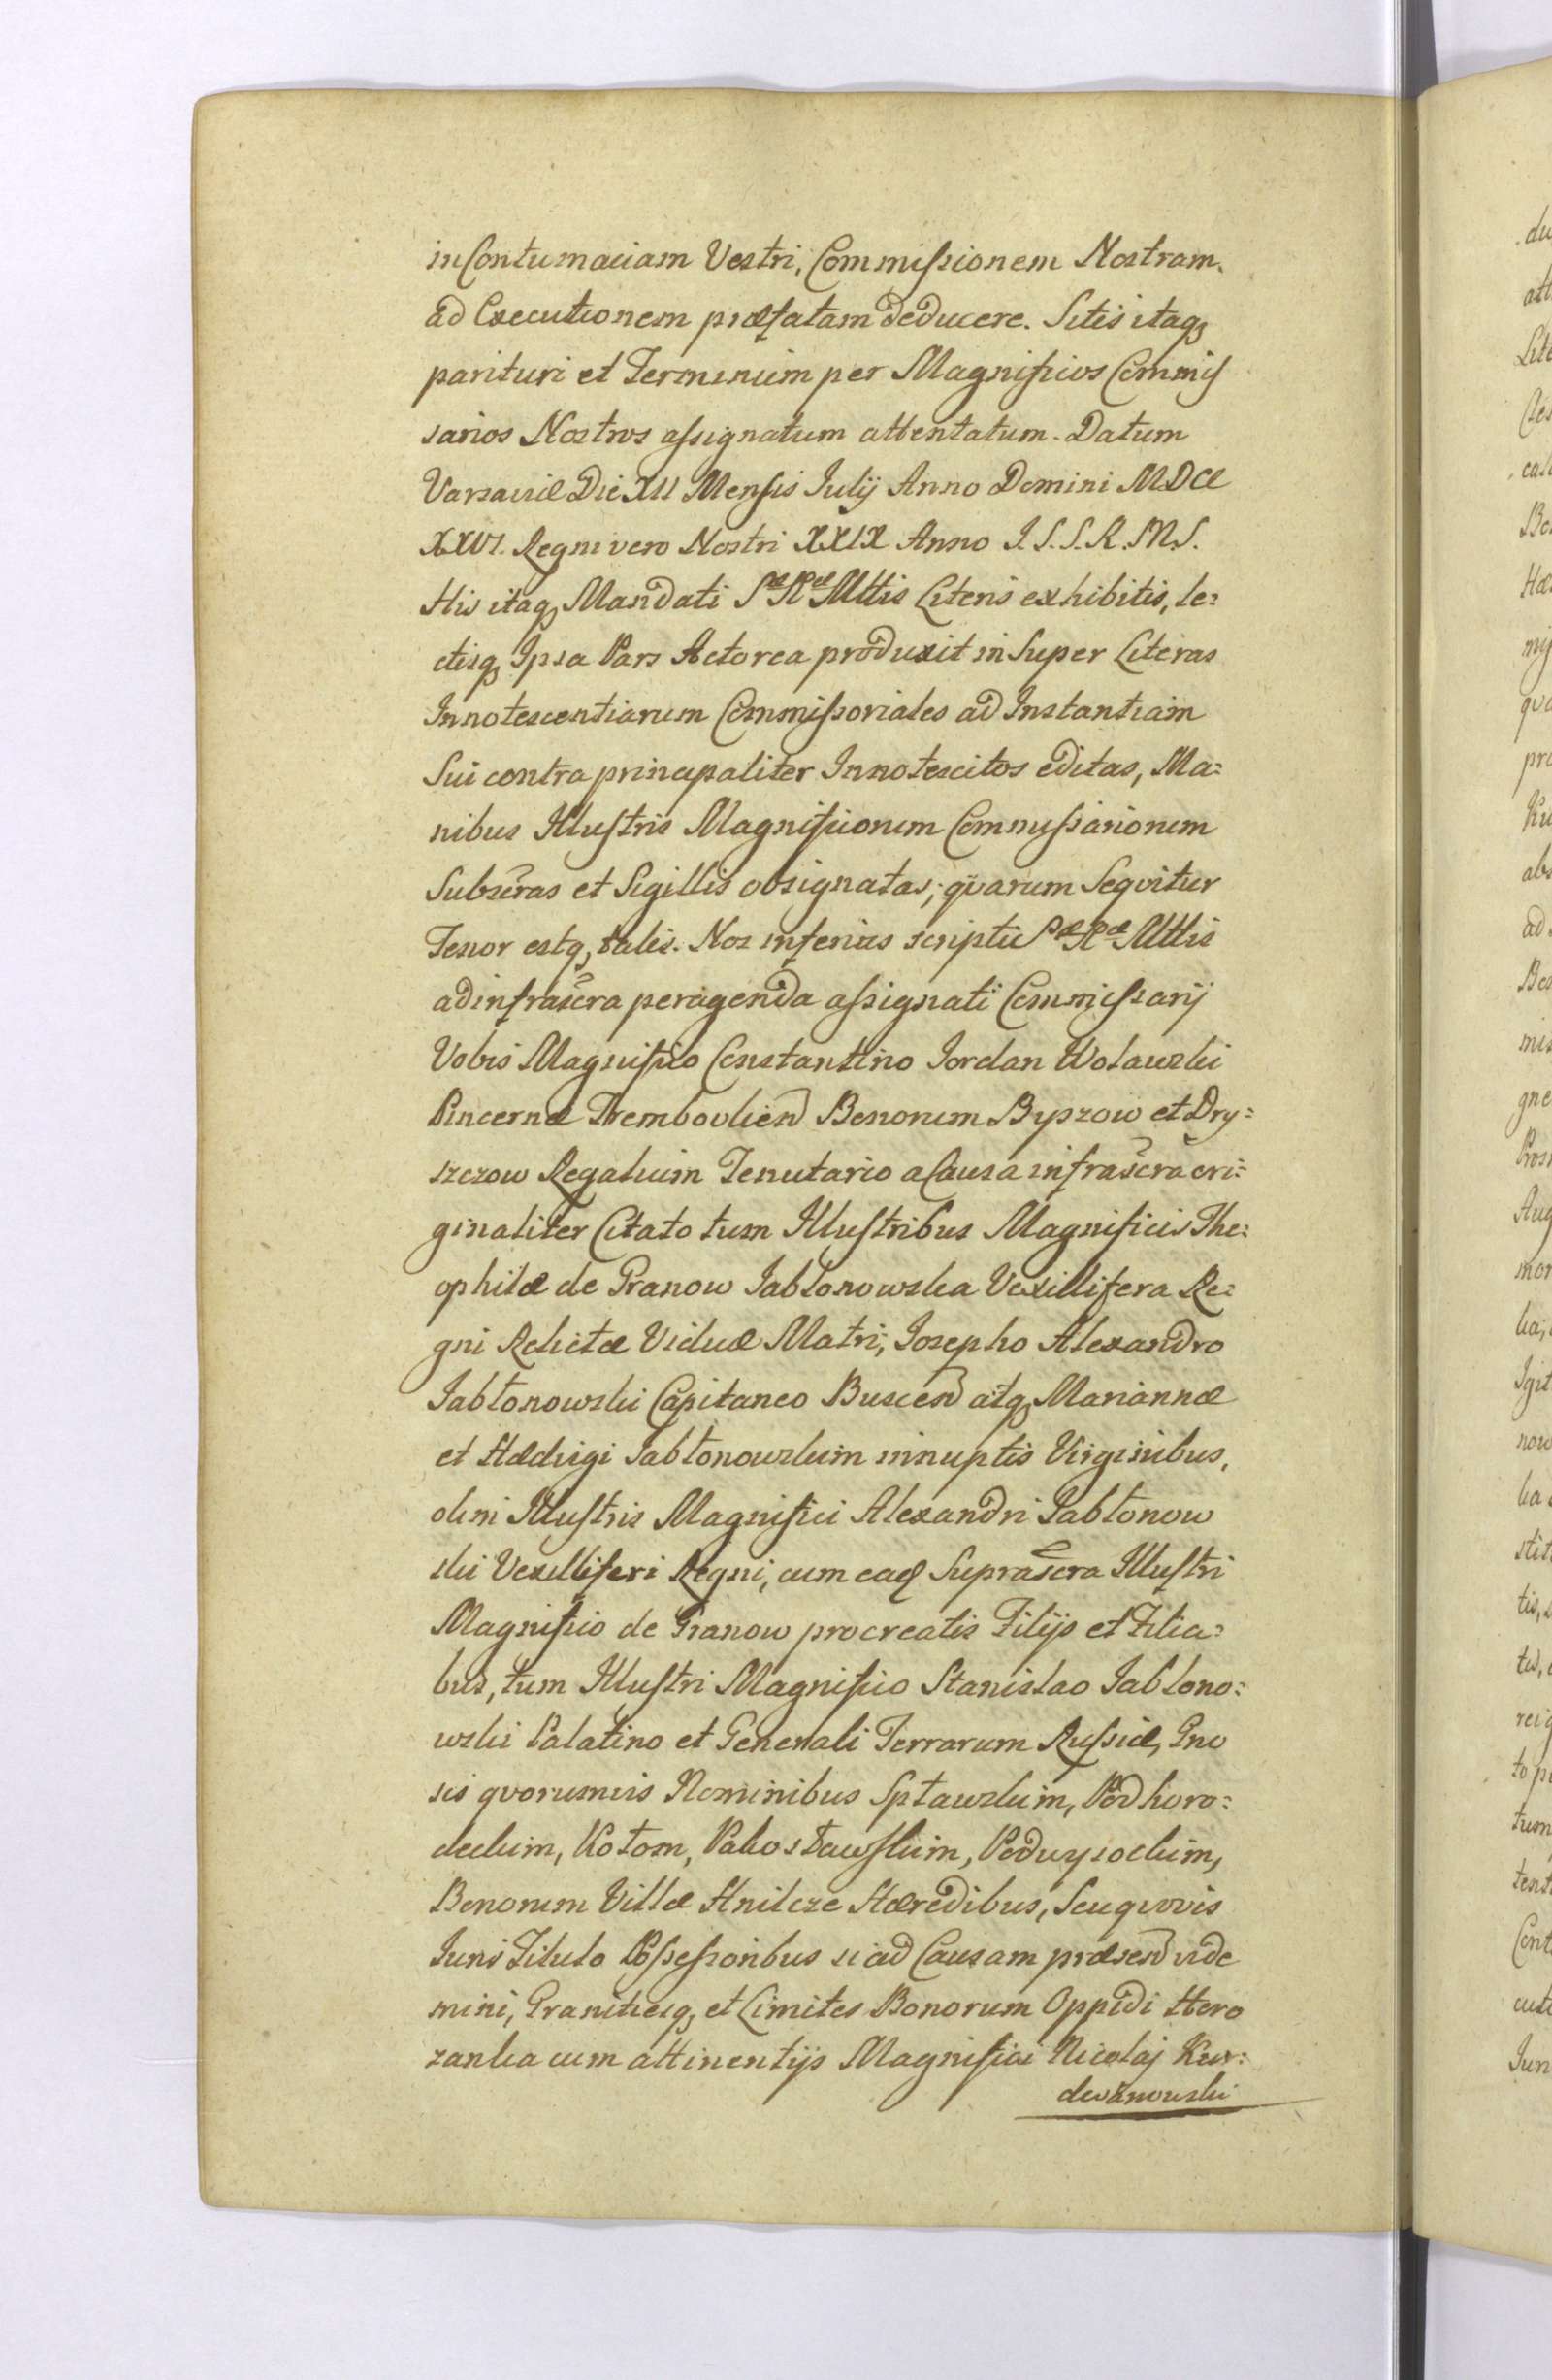 in Contumaciam Vestri, Commissionem Nostram
ad Executionem præfatam deducere. Sitis itaq
parituri et Terminum per Magnificos Commis
sarios Nostros assignatum attentatum. Datum
Varsaviæ Die XII Mensis Julij Anno Domini MDCC
XXVI. Regni vero Nostri XXIX Anno J. S. S. R. M. S.
His itaq Mandati Sæ Ræ Mttis Literis exhibitis, le:
ctisq Ipsa Pars Actorea produxit in Super Literas
Innotescentiarum Commissoriales ad Instantiam
Sui contra principaliter Innotescitos editas, Ma:
nibus Illustris Magnificorum Commissariorum
Subscras et Sigillis obsignatas; qvarum Seqvitur
Tenor estq, talis. Nos inferius scripti Sæ Ræ Mttis
ad infrascra peragenda assignati Commissarij
Vobis Magnifico Constantino Jordan Wolawski
Pincernæ Trembovlien Bonorum Byszow et Dry:
szczow Regalium Tenutario a Causa infrascra ori:
ginaliter Citato tum Illustribus Magnificis The:
ophilæ de Granow Jabłonowska Vexillifera Re:
gni Relictæ Viduæ Matri; Josepho Alexandro
Jabłonowski Capitaneo Buscen atq Mariannæ
et Hædvigi Jabłonowskim innuptis Virginibus,
olim Illustris Magnifici Alexandri Jabłonow
ski Vexilliferi Regni, cum ead Suprascra Illustri
Magnifico de Granow procreatis Filijs et Filia:
bus, tum Illustri Magnifico Stanislao Jabłono:
wski Palatino et Generali Terrarum Russiæ, Gno
sis qvorumvis Nominibus Spławskim, Podhoro:
deckim, Kotom, Pakosławskim, Podwysockim,
Bonorum Villæ Hnilcze Hæredibus, Seu qvovis
Juris Titulo Possessoribus si ad Causam præsen vide
mini, Granitiesq, et Limites Bonorum Oppidi Horo
zanka cum attinentijs Magnifici Nicolaj Kur:
dwanowski